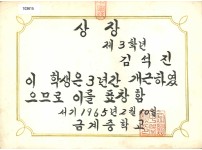 상장
제3학년
김석진
이 학생은 3년간 개근하였
으므로 이를 표창함
서기 1965년 2월 10일
금계중학교